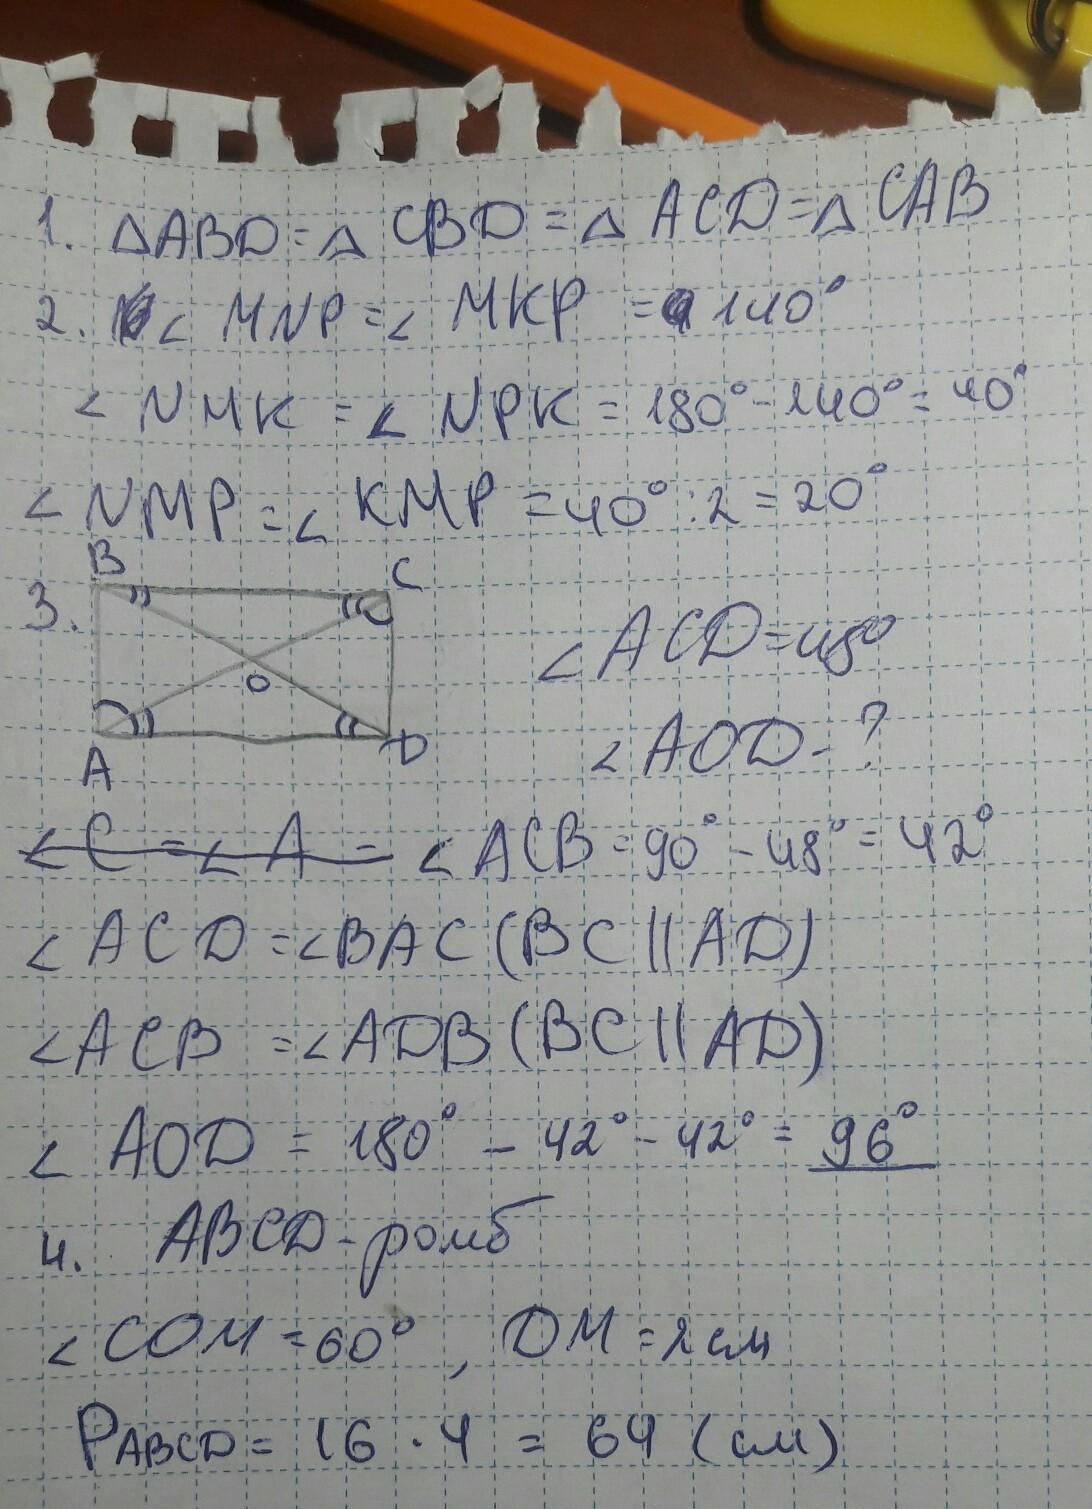 1. △ABD = △ CBD = △ ACD = △ CAB
2. ∠ MNP = ∠ MKP = 140°
∠ NMK = ∠ NPK = 180° - 140° = 40°
∠ NMP = ∠ KMP = 40° : 2 = 20°
B C
3.
O
A D
∠ ACD = 48°
∠ AOD - ?
∠ C = ∠ A = ∠ ACB = 90° - 48° = 42°
∠ ACD = ∠BAC (BC || AD)
∠ ACB = ∠ ADB (BC || AD)
∠ AOD = 180° - 42° - 42° = 96°
4. ABCD - ромб
∠ COM = 60°, OM = 2 см
PABCD = 16 · 4 = 64 (см)